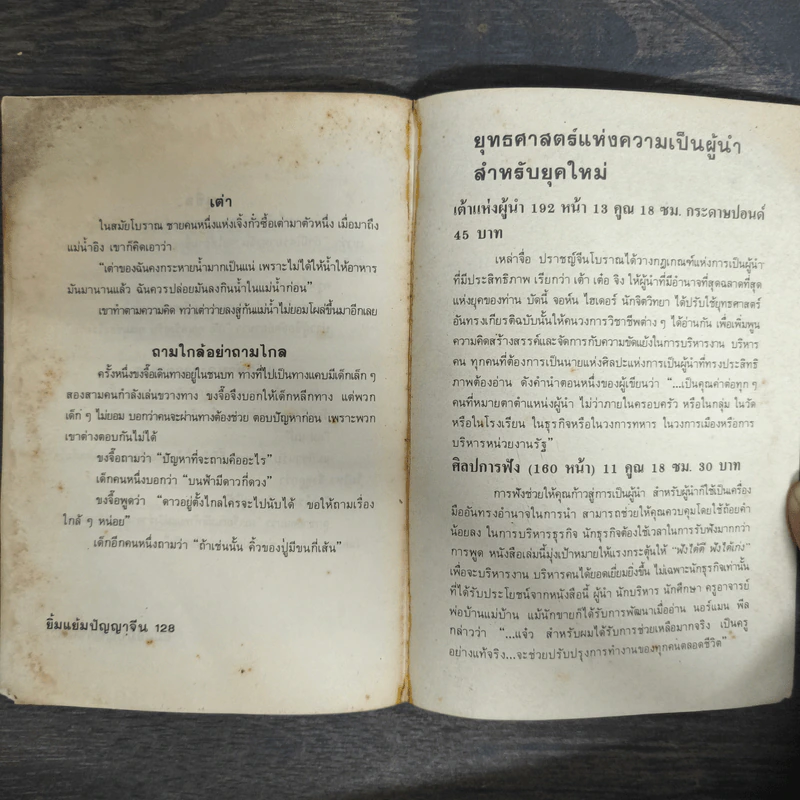 เต่า
ในสมัยโบราณ ชายคนหนึ่งแห่งเจิ้งกั๋วซื้อเต่ามาตัวหนึ่ง เมื่อมาถึง
แม่น้ำอิง เขาก็คิดเอาว่า
“เต่าของฉันคงกระหายน้ำมากเป็นแน่ เพราะไม่ได้ให้น้ำให้อาหาร
มันมานานแล้ว ฉันควรปล่อยมันลงกินน้ำในแม่น้ำก่อน”
เขาทำตามความคิด ทว่าเต่าว่ายลงสู่ก้นแม่น้ำไม่ยอมโผล่ขึ้นมาอีกเลย
ถามใกล้อย่าถามไกล
ครั้งหนึ่งขงจื้อเดินทางอยู่ในชนบท ทางที่ไปเป็นทางแคบมีเด็กเล็ก ๆ
สองสามคนกำลังเล่นขวางทาง ขงจื้อจึงบอกให้เด็กหลีกทาง แต่พวก
เด็ก ๆ ไม่ยอม บอกว่าคนจะผ่านทางต้องช่วย ตอบปัญหาก่อน เพราะพวก
เขาต่างตอบกันไม่ได้
ขงจื้อถามว่า “ปัญหาที่จะถามคืออะไร”
เด็กคนหนึ่งบอกว่า “บนฟ้ามีดาวกี่ดวง”
ขงจื้อพูดว่า “ดาวอยู่ตั้งไกลใครจะไปนับได้ ขอให้ถามเรื่อง
ใกล้ ๆ หน่อย”
เด็กอีกคนหนึ่งถามว่า “ถ้าเช่นนั้น คิ้วของปู่มีขนกี่เส้น”
ยิ้มแย้มปัญญาจีน 128
ยุทธศาสตร์แห่งความเป็นผู้นำ
สำหรับยุคใหม่
เต๋าแห่งผู้นำ 192 หน้า 13 คูณ 18 ซม. กระดาษปอนด์
45 บาท
เหล่าจื่อ ปราชญ์จีนโบราณได้วางกฎเกณฑ์แห่งการเป็นผู้นำ
ที่มีประสิทธิภาพ เรียกว่า เต๋า เต๋อ จิง ให้ผู้นำที่มีอำนาจที่สุดฉลาดที่สุด
แห่งยุคของท่าน บัดนี้ จอห์น ไฮเดอร์ นักจิตวิทยา ได้ปรับใช้ยุทธศาสตร์
อันทรงเกียรติฉบับนั้นให้คนวงการวิชาชีพต่าง ๆ ได้อ่านกัน เพื่อเพิ่มพูน
ความคิดสร้างสรรค์และจัดการกับความขัดแย้งในการบริหารงาน บริหาร
คน ทุกคนที่ต้องการเป็นนายแห่งศิลปะแห่งการเป็นผู้นำที่ทรงประสิทธิ
ภาพต้องอ่าน ดังคำนำตอนหนึ่งของผู้เขียนว่า “...เป็นคุณค่าต่อทุก ๆ
คนที่หมายตาตำแหน่งผู้นำ ไม่ว่าภายในครอบครัว หรือในกลุ่ม ในวัด
หรือในโรงเรียน ในธุรกิจหรือในวงการทหาร ในวงการเมืองหรือการ
บริหารหน่วยงานรัฐ”
ศิลปการฟัง (160 หน้า) 11 คูณ 18 ซม. 30 บาท
การฟังช่วยให้คุณก้าวสู่การเป็นผู้นำ สำหรับผู้นำก็ใช้เป็นเครื่อง
มืออันทรงอำนาจในการนำ สามารถช่วยให้คุณควบคุมโดยใช้ถ้อยคำ
น้อยลง ในการบริหารธุรกิจ นักธุรกิจต้องใช้เวลาในการรับฟังมากกว่า
การพูด หนังสือเล่มนี้มุ่งเป้าหมายให้แรงกระตุ้นให้ “ฟังได้ดี ฟังได้เก่ง”
เพื่อจะบริหารงาน บริหารคนได้ยอดเยี่ยมยิ่งขึ้น ไม่เฉพาะนักธุรกิจเท่านั้น
ที่ได้รับประโยชน์จากหนังสือนี้ ผู้นำ นักบริหาร นักศึกษา ครูอาจารย์
พ่อบ้านแม่บ้าน แม้นักขายก็ได้รับการพัฒนาเมื่ออ่าน นอร์แมน พีล
กล่าวว่า “...แจ๋ว สำหรับผมได้รับการช่วยเหลือมากจริง เป็นครู
อย่างแท้จริง...จะช่วยปรับปรุงการทำงานของทุกคนตลอดชีวิต”